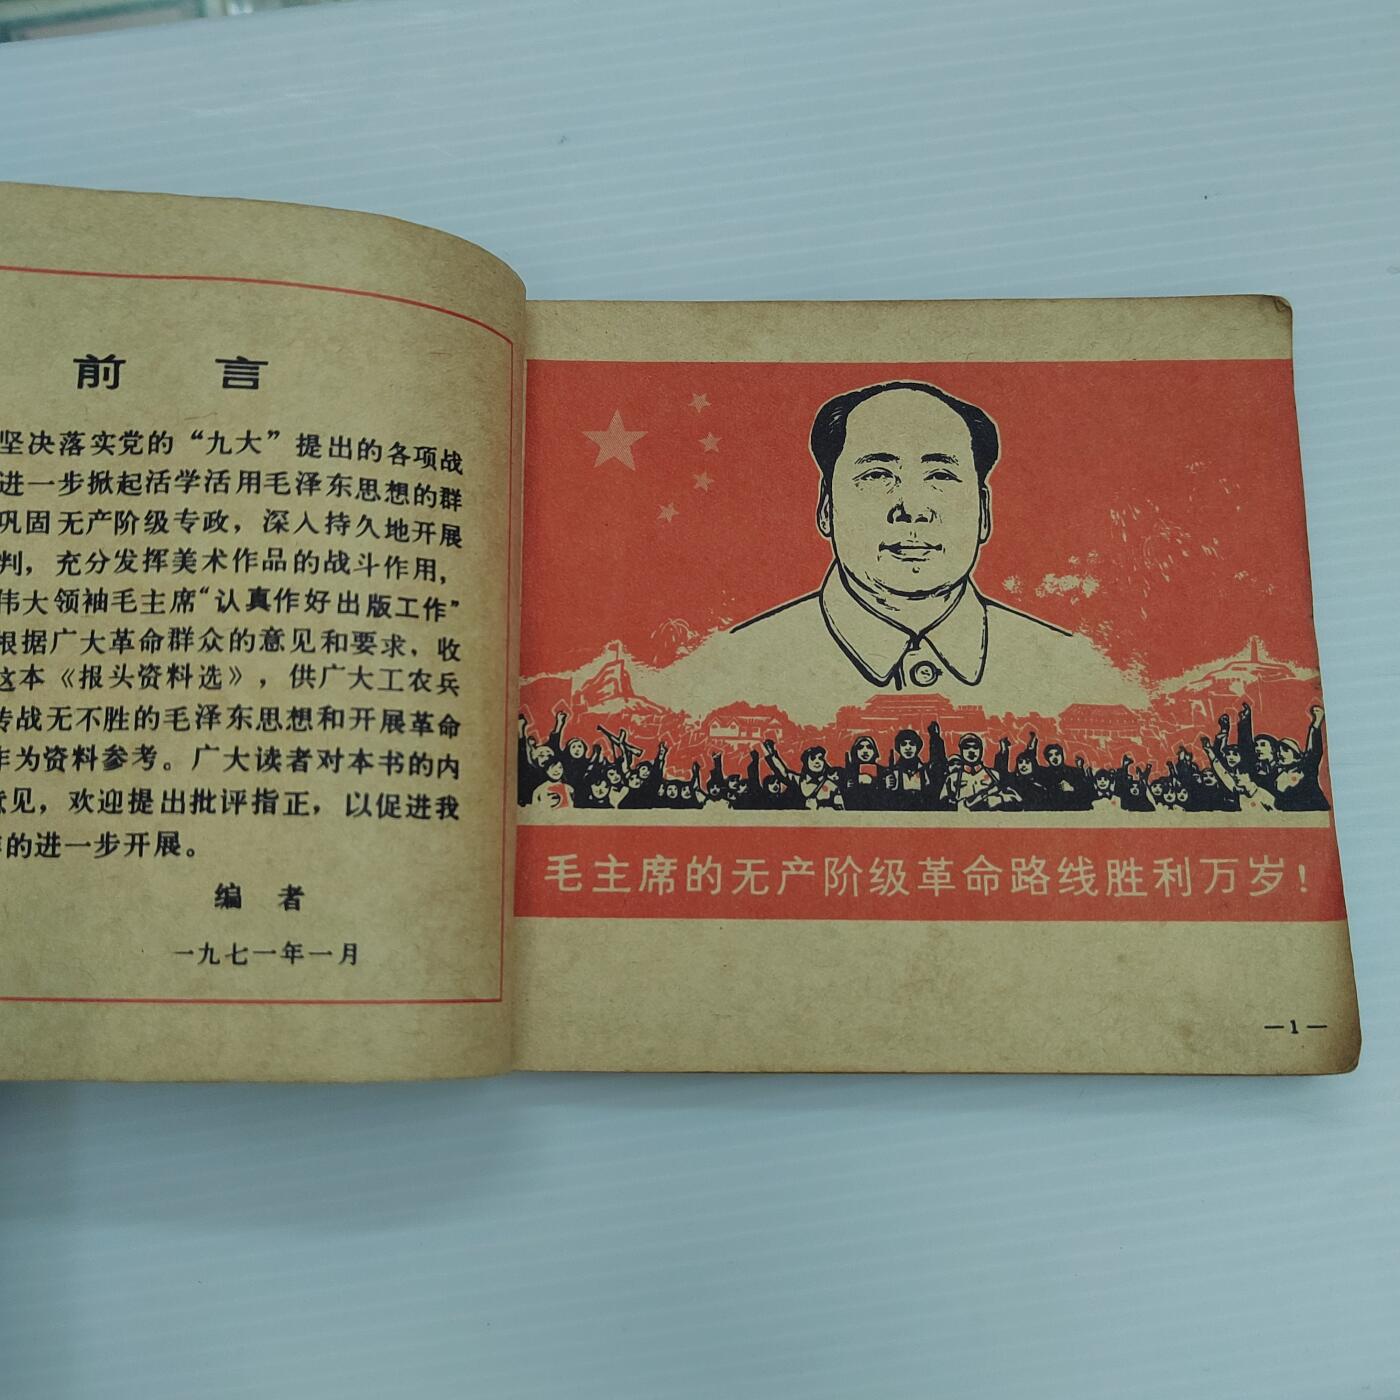 前 言
坚决落实党的“九大”提出的各项战
进一步掀起活学活用毛泽东思想的群
巩固无产阶级专政，深入持久地开展
判，充分发挥美术作品的战斗作用，
伟大领袖毛主席“认真作好出版工作”
根据广大革命群众的意见和要求，收
这本《报头资料选》，供广大工农兵
传战无不胜的毛泽东思想和开展革命
作为资料参考。广大读者对本书的内
意见，欢迎提出批评指正，以促进我
的进一步开展。
编 者
一九七一年一月
毛主席的无产阶级革命路线胜利万岁！
—1—